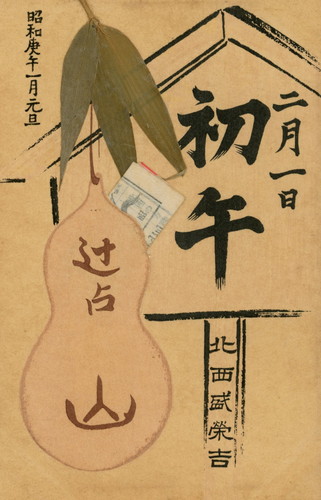 昭和庚午一月元旦
二月一日
初午
辻占
山
北西盛榮吉